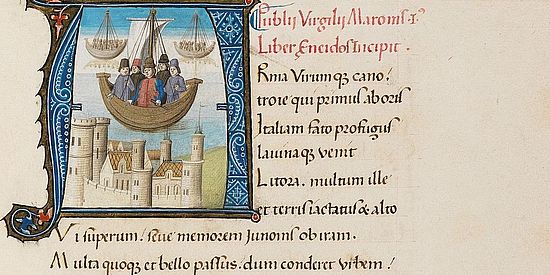 Publii Virgilii Maronis .I.
Liber Eneidos Incipit .
ARma Virumqꝫ cano /
troie qui primus aboris
Italiam fato profugus
lauinaqꝫ venit
Litora. multum ille
et terris iactatus & alto
Vi superum / seue memorem Iunonis ob iram.
Multa quoqꝫ et bello passus / dum conderet vrbem /